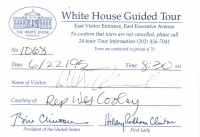 White House Guided Tour
THE WHITE HOUSE
East Visitor Entrance, East Executive Avenue
To confirm that tours are not cancelled, please call
24-hour Tour Information (202) 456-7041
Tours are conducted in groups of 70
No: 1068
Date: 6/22/95 Time: 8:30
Name of Visitor:
Courtesy of: Rep Wes Cooley
Bill Clinton Hillary Rodham Clinton
President of the United States First Lady